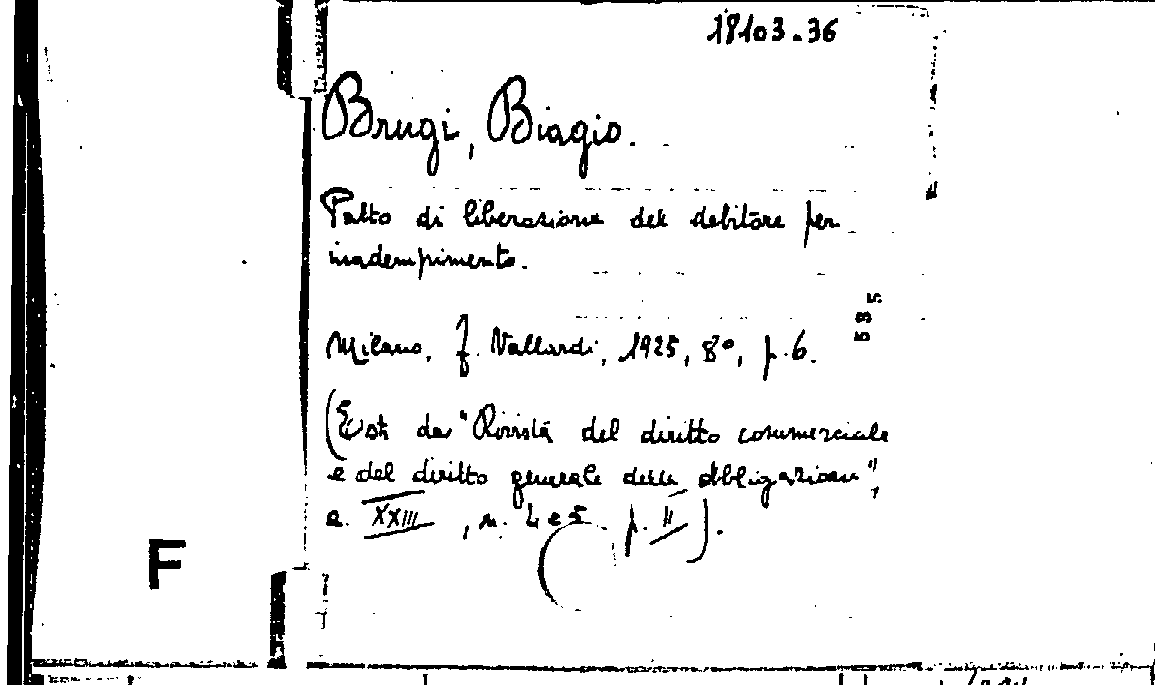 18103.36
Brugi, Biagio.
Patto di liberazione del debitore per
inadempimento.
Milano, F. Vallardi, 1925, 8°, p. 6.
(Estr. da "Rivista del diritto commerciale
e del diritto generale delle obbligazioni",
a. XXIII, n. 4 e 5. p. II).
F